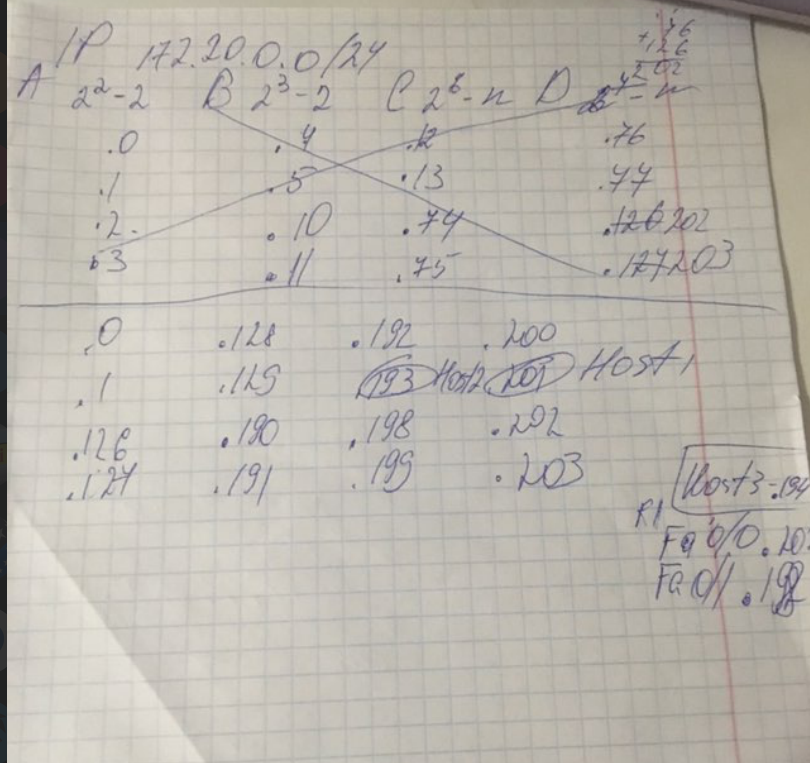 IP 172.20.0.0/24
76
+126
202
A 2²-2 B 2³-2 C 2⁶-n D
.0 .4 .12 .76
.1 .5 .13 .77
.2 .10 .74 .126 202
.3 .11 .75 .127 203
.0 .128 .192 .200
.1 .129 193 Host2 201 Host1
.126 .190 .198 .202
.127 .191 .199 .203
Host3-.194
R1
Fa0/0 .202
Fa0/1